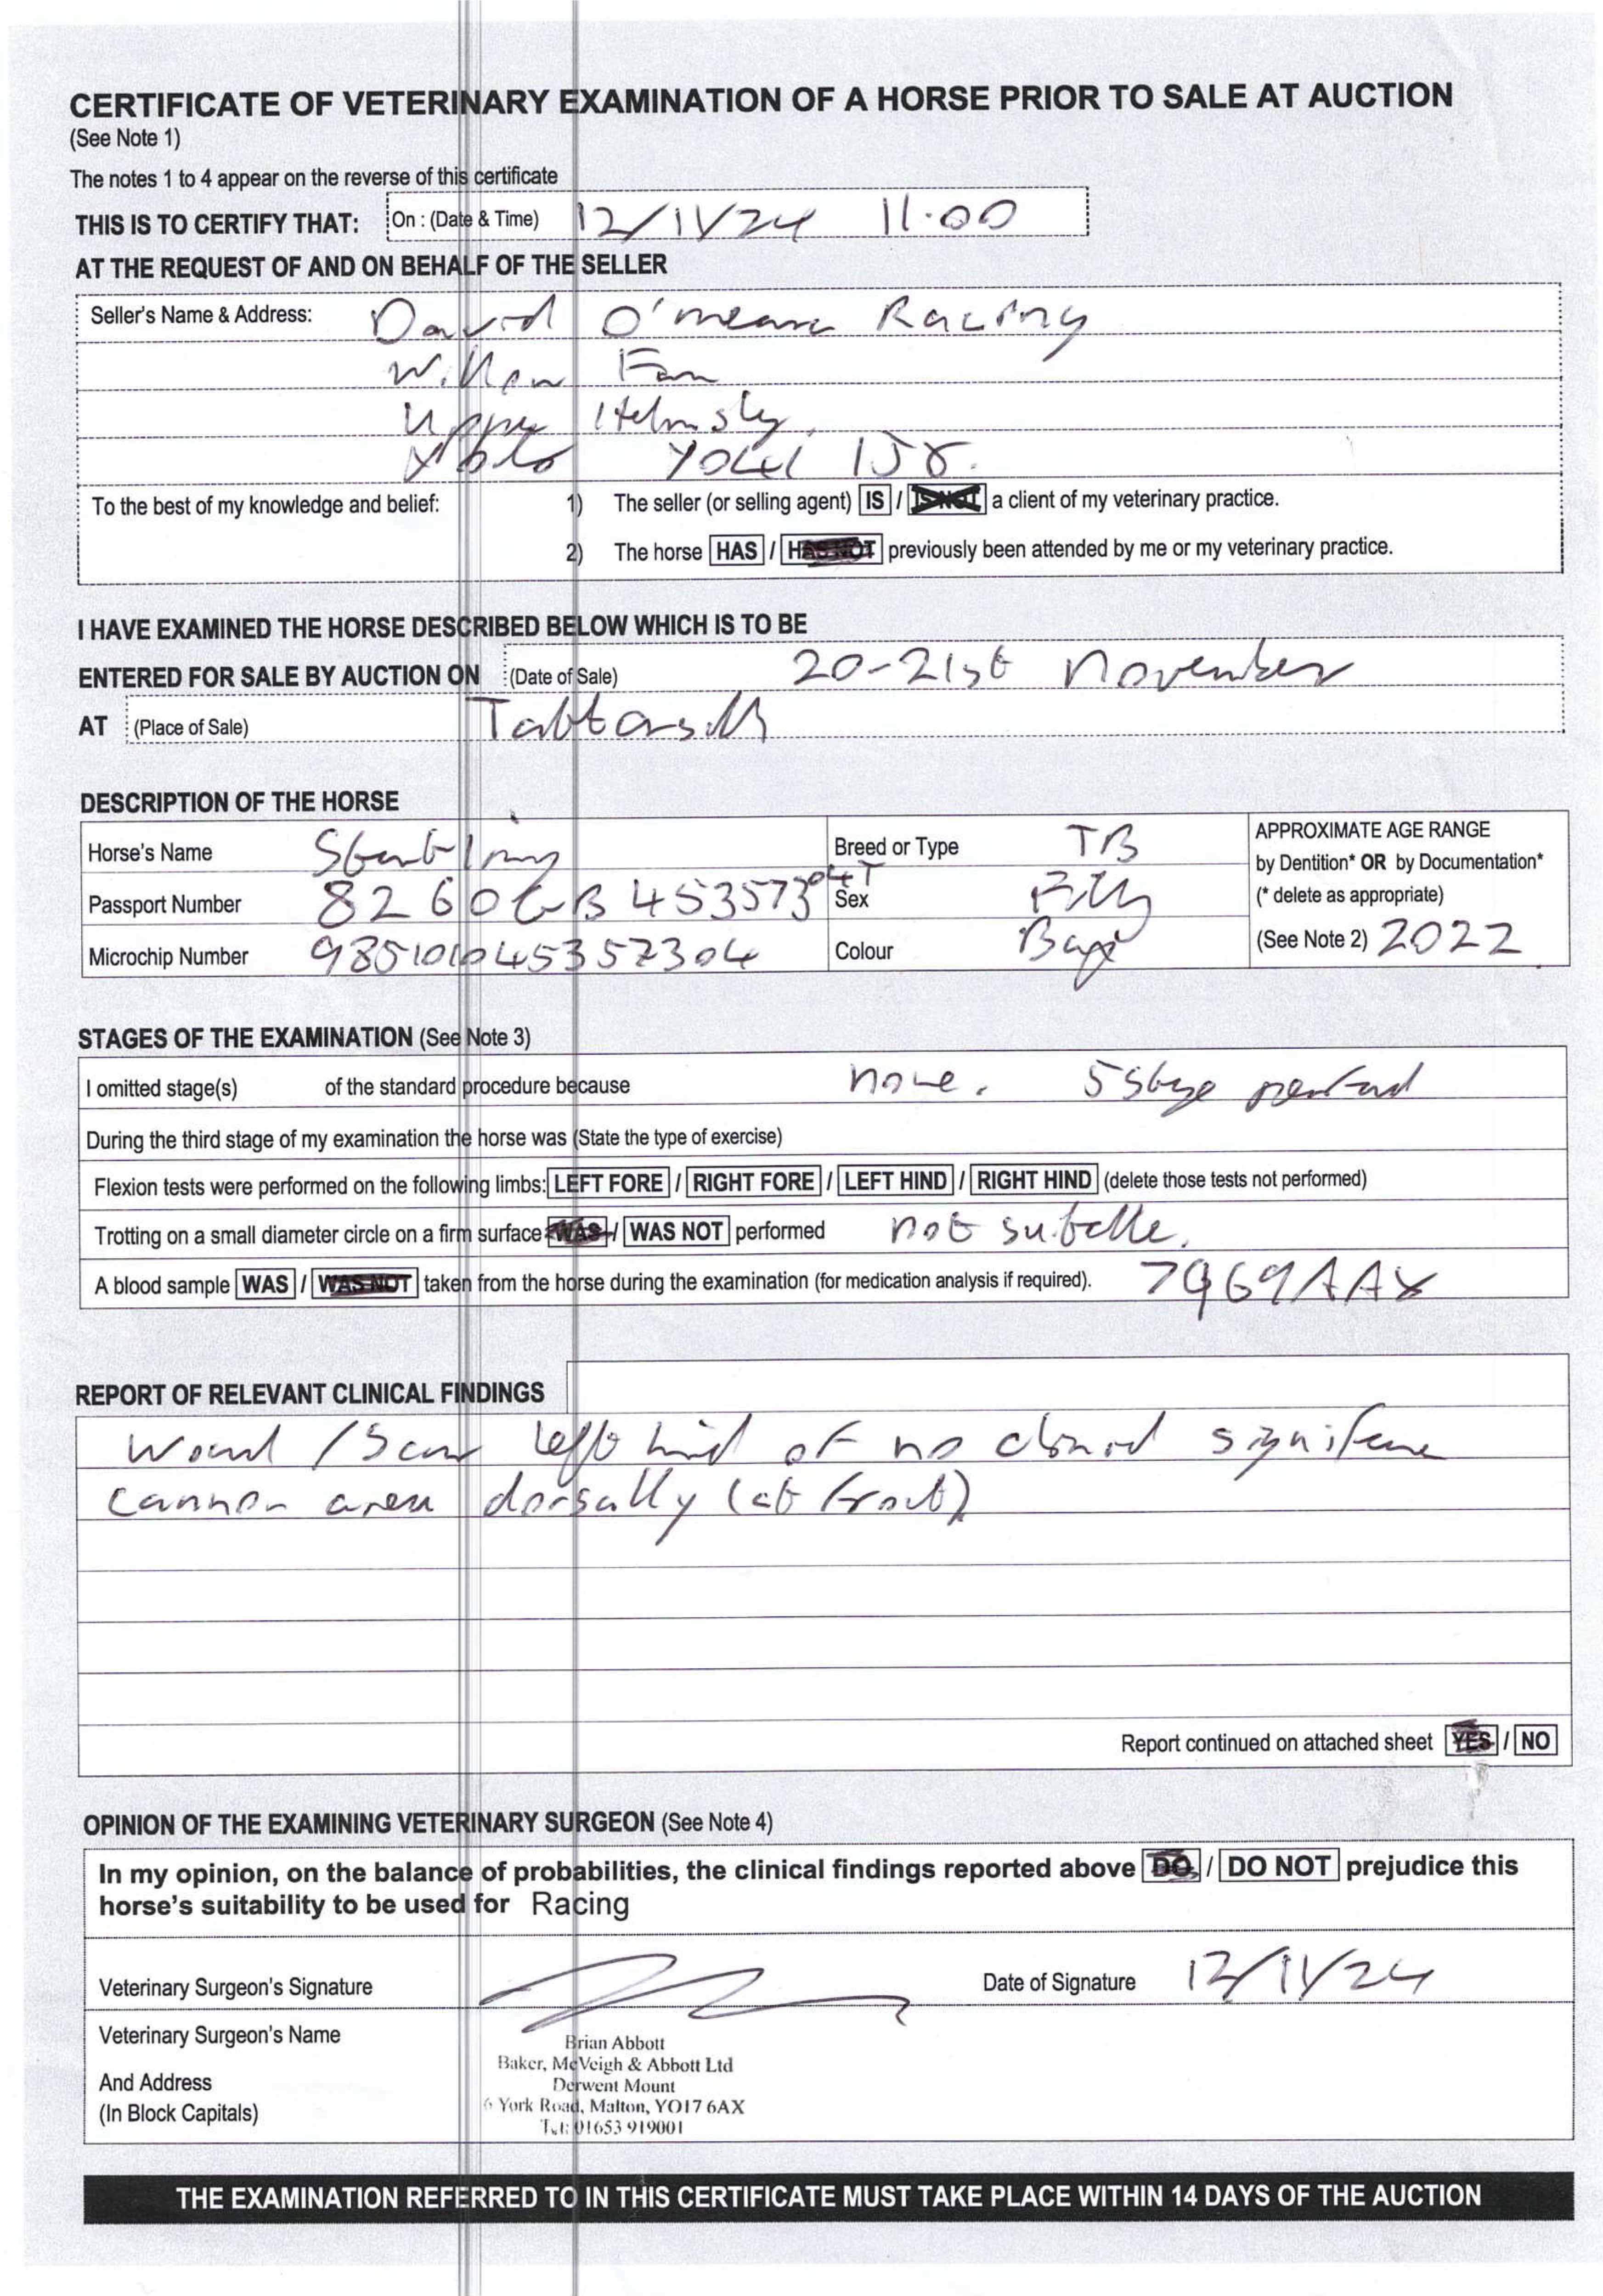 CERTIFICATE OF VETERINARY EXAMINATION OF A HORSE PRIOR TO SALE AT AUCTION
(See Note 1)
The notes 1 to 4 appear on the reverse of this certificate
THIS IS TO CERTIFY THAT: On : (Date & Time) 12/11/24 11.00
AT THE REQUEST OF AND ON BEHALF OF THE SELLER
Seller's Name & Address: David O'meara Racing
Willow Farm
Upper Helmsley
To the best of my knowledge and belief: 1) The seller (or selling agent) IS / IS NOT a client of my veterinary practice.
2) The horse HAS / HAS NOT previously been attended by me or my veterinary practice.
I HAVE EXAMINED THE HORSE DESCRIBED BELOW WHICH IS TO BE
ENTERED FOR SALE BY AUCTION ON (Date of Sale) 20-21st November
AT (Place of Sale) Tattersalls
DESCRIPTION OF THE HORSE
Horse's Name Breed or Type TB APPROXIMATE AGE RANGE
by Dentition* OR by Documentation*
Passport Number 8260GB45357304T Sex Filly (* delete as appropriate)
Microchip Number 985101045357304 Colour Bay (See Note 2) 2022
STAGES OF THE EXAMINATION (See Note 3)
I omitted stage(s) of the standard procedure because none. 5 stage performed
During the third stage of my examination the horse was (State the type of exercise)
Flexion tests were performed on the following limbs: LEFT FORE / RIGHT FORE / LEFT HIND / RIGHT HIND (delete those tests not performed)
Trotting on a small diameter circle on a firm surface WAS / WAS NOT performed not suitable.
A blood sample WAS / WAS NOT taken from the horse during the examination (for medication analysis if required). 7969AAX
REPORT OF RELEVANT CLINICAL FINDINGS
Wound / Scar left hind of no clinical significance
cannon area dorsally (at front)
Report continued on attached sheet YES / NO
OPINION OF THE EXAMINING VETERINARY SURGEON (See Note 4)
In my opinion, on the balance of probabilities, the clinical findings reported above DO / DO NOT prejudice this
horse's suitability to be used for Racing
Veterinary Surgeon's Signature Date of Signature 12/11/24
Veterinary Surgeon's Name
Brian Abbott
Baker, McVeigh & Abbott Ltd
And Address
Derwent Mount
(In Block Capitals)
6 York Road, Malton, YO17 6AX
Tel: 01653 919001
THE EXAMINATION REFERRED TO IN THIS CERTIFICATE MUST TAKE PLACE WITHIN 14 DAYS OF THE AUCTION